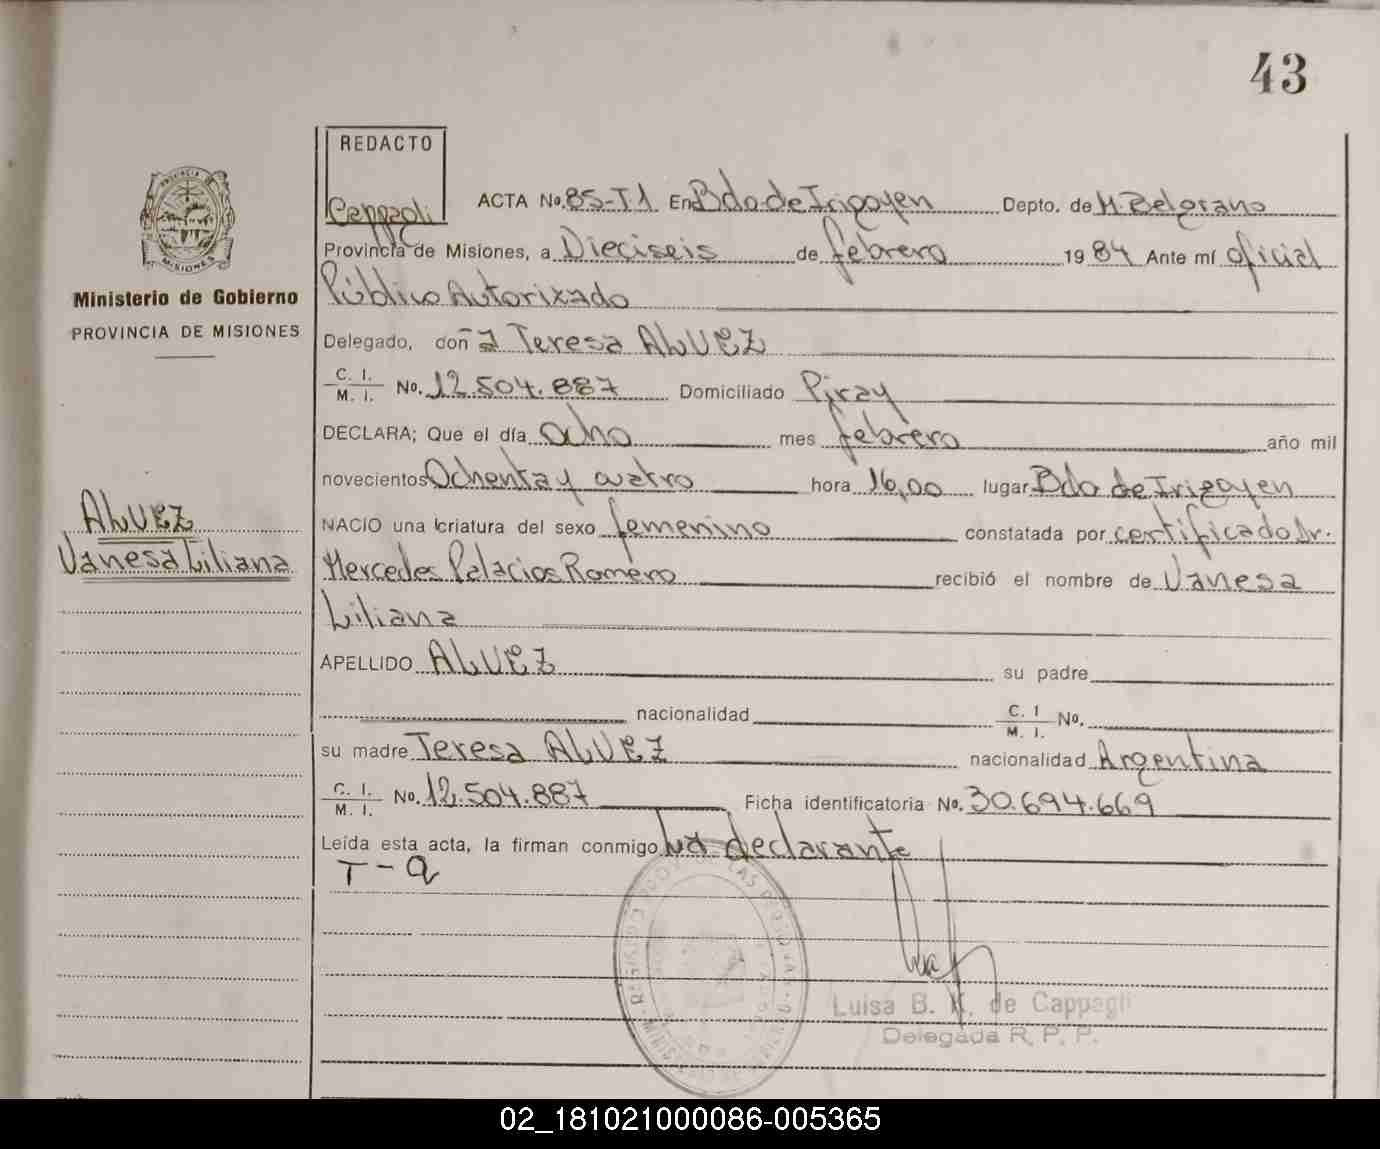 43
REDACTO
Cappagli
PROVINCIA DE
MISIONES
Ministerio de Gobierno
PROVINCIA DE MISIONES
ALVEZ
Vanesa Liliana
ACTA No. 85-T1 En Bdo de Irigoyen Depto. de M. Belgrano
Provincia de Misiones, a Dieciseis de febrero 1984 Ante mí oficial
Público Autorizado
Delegado, doña Teresa ALVEZ
C. I. / M. I. No. 12.504.887 Domiciliado Piray
DECLARA; Que el día Ocho mes febrero año mil
novecientos Ochenta y cuatro hora 16,00 lugar Bdo de Irigoyen
NACIO una criatura del sexo femenino constatada por certificado Dr.
Mercedes Palacios Romero recibió el nombre de Vanesa
Liliana
APELLIDO ALVEZ su padre
nacionalidad C. I / M. I. No.
su madre Teresa ALVEZ nacionalidad Argentina
C. I. / M. I. No. 12.504.887 Ficha identificatoria No. 30.694.669
Leída esta acta, la firman conmigo La declarante
T-a
Luisa B. K. de Cappagli
Delegada R. P. P.
02_181021000086-005365